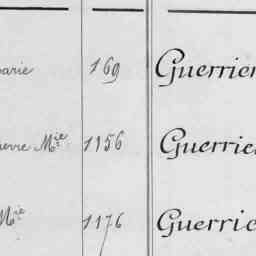 arie 169 Guerrier
ierre Mie 1156 Guerrie
Mie 1176 Guerrie